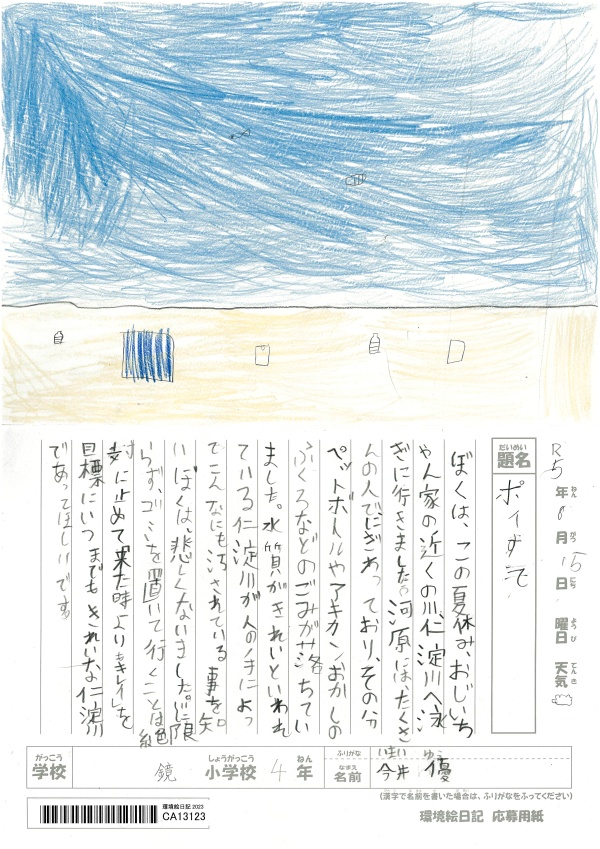 R5年8月15日曜日天気
ねん がつ にち ようび てんき
だいめい
題名 ポイすて
ぼくは、この夏休み、おじいち
ゃん家の近くの川、仁淀川へ泳
ぎに行きました。河原には、たくさ
んの人でにぎわっており、その分
ペットボトルやアキカンおかしの
ふくろなどのごみが落ちてい
ました。水質がきれいといわれ
ている仁淀川が人の手によっ
てこんなにも汚されている事を知
りぼくは、悲しくなりました。川に限
らず、ゴミを置いて行くことは絶
対に止めて「来た時よりもキレイ」を
目標にいつまでもきれいな仁淀川
であってほしいです
がっこう しょうがっこう ねん ふりがな いまい ゆう
学校 鏡 小学校 4年 なまえ 名前 今井 優
(漢字で名前を書いた場合は、ふりがなをふってください)
環境絵日記 2023
CA13123
環境絵日記 応募用紙